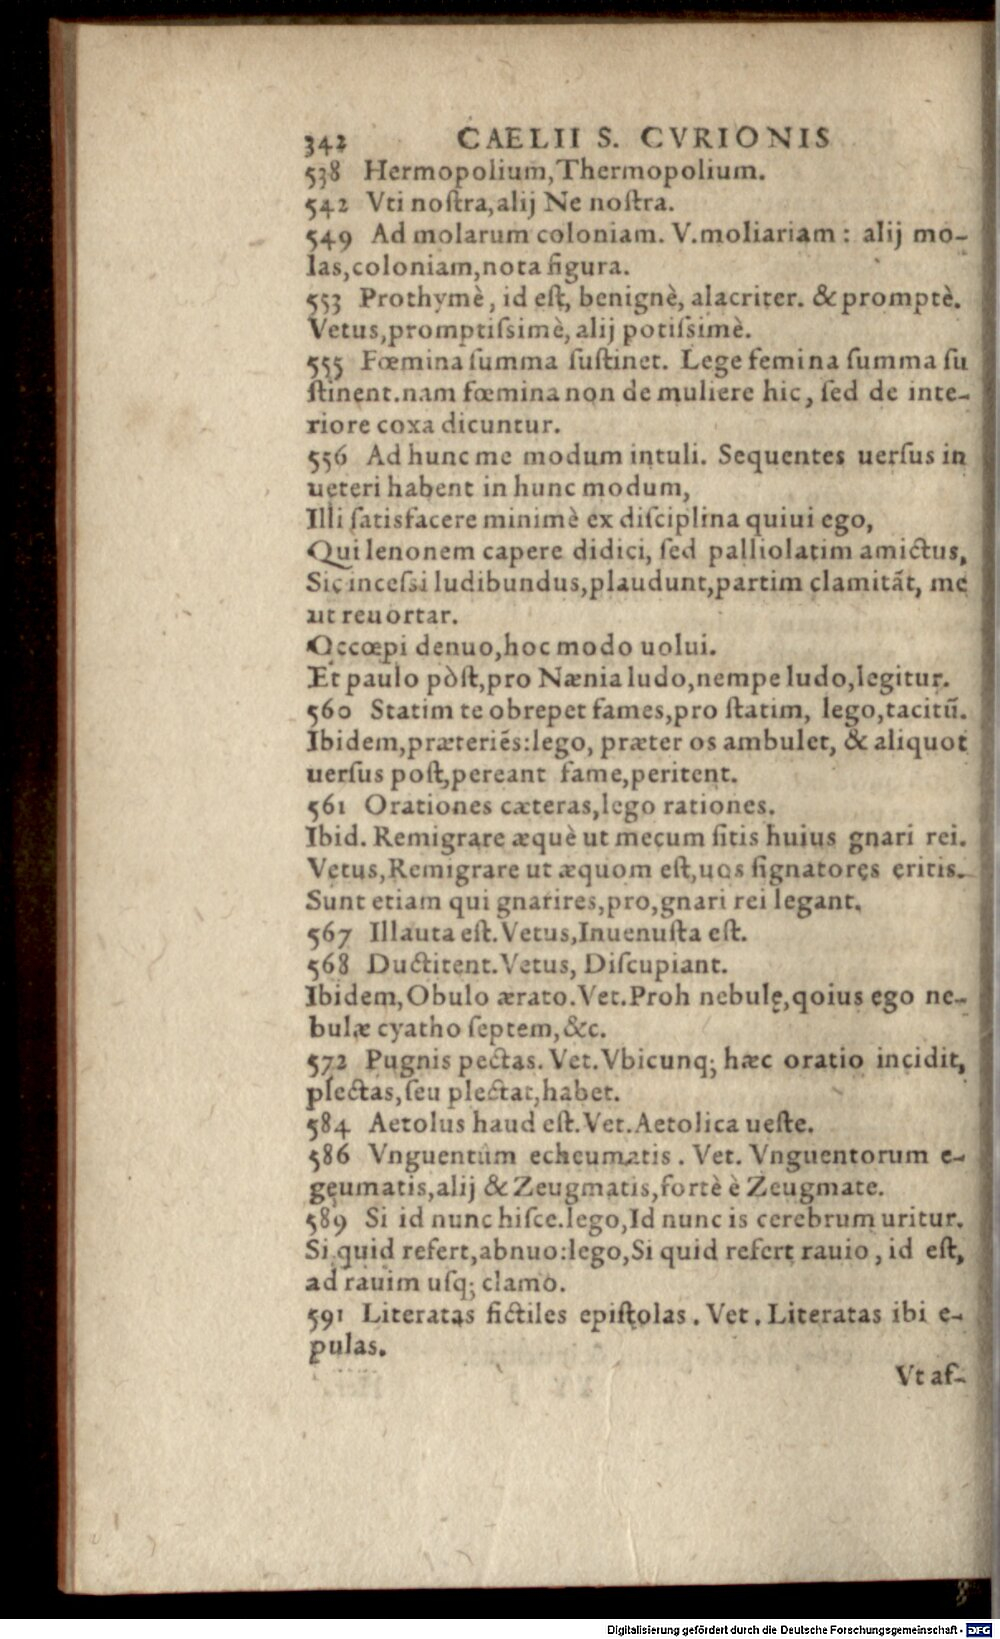 342 CAELII S. CVRIONIS
538 Hermopolium, Thermopolium.
542 Vti noſtra, alij Ne noſtra.
549 Ad molarum coloniam. V. moliariam : alij mo-
las, coloniam, nota figura.
553 Prothymè, id eſt, benignè, alacriter. & promptè.
Vetus, promptiſsimè, alij potiſsimè.
555 Fœmina ſumma ſuſtinet. Lege femina ſumma ſu
ſtinent. nam fœmina non de muliere hic, ſed de inte-
riore coxa dicuntur.
556 Ad hunc me modum intuli. Sequentes uerſus in
ueteri habent in hunc modum,
Illi ſatisfacere minimè ex diſciplina quiui ego,
Qui lenonem capere didici, ſed palliolatim amictus,
Sic inceſsi ludibundus, plaudunt, partim clamitãt, me
ut reuortar.
Occœpi denuo, hoc modo uolui.
Et paulo pòſt, pro Nænia ludo, nempe ludo, legitur.
560 Statim te obrepet fames, pro ſtatim, lego, tacitũ.
Ibidem, præteriẽs: lego, præter os ambulet, & aliquot
uerſus poſt, pereant fame, peritent.
561 Orationes cæteras, lego rationes.
Ibid. Remigrare æquè ut mecum ſitis huius gnari rei.
Vetus, Remigrare ut æquom eſt, uos ſignatores eritis.
Sunt etiam qui gnarires, pro, gnari rei legant.
567 Illauta eſt. Vetus, Inuenuſta eſt.
568 Ductitent. Vetus, Diſcupiant.
Ibidem, Obulo ærato. Vet. Proh nebulę, qoius ego ne-
bulæ cyatho ſeptem, &c.
572 Pugnis pectas. Vet. Vbicunq; hæc oratio incidit,
plectas, ſeu plectat, habet.
584 Aetolus haud eſt. Vet. Aetolica ueſte.
586 Vnguentùm echeumatis. Vet. Vnguentorum e-
geumatis, alij & Zeugmatis, fortè è Zeugmate.
589 Si id nunc hiſce. lego, Id nunc is cerebrum uritur.
Si quid refert, abnuo: lego, Si quid refert rauio, id eſt,
ad rauim uſq; clamo.
591 Literatas fictiles epiſtolas. Vet. Literatas ibi e-
pulas.
Vt af-
Digitalisierung gefördert durch die Deutsche Forschungsgemeinschaft - DFG